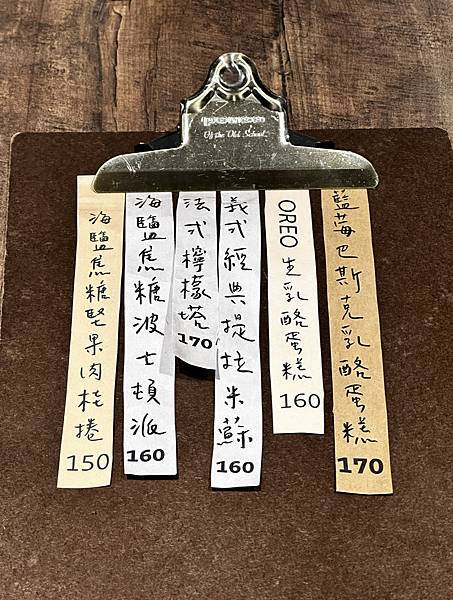 Of the Old School
藍莓巴斯克乳酪蛋糕
170
OREO 生乳酪蛋糕
160
義式經典提拉米蘇
160
法式檸檬塔
170
海鹽焦糖波士頓派
160
海鹽焦糖堅果肉桂捲
150